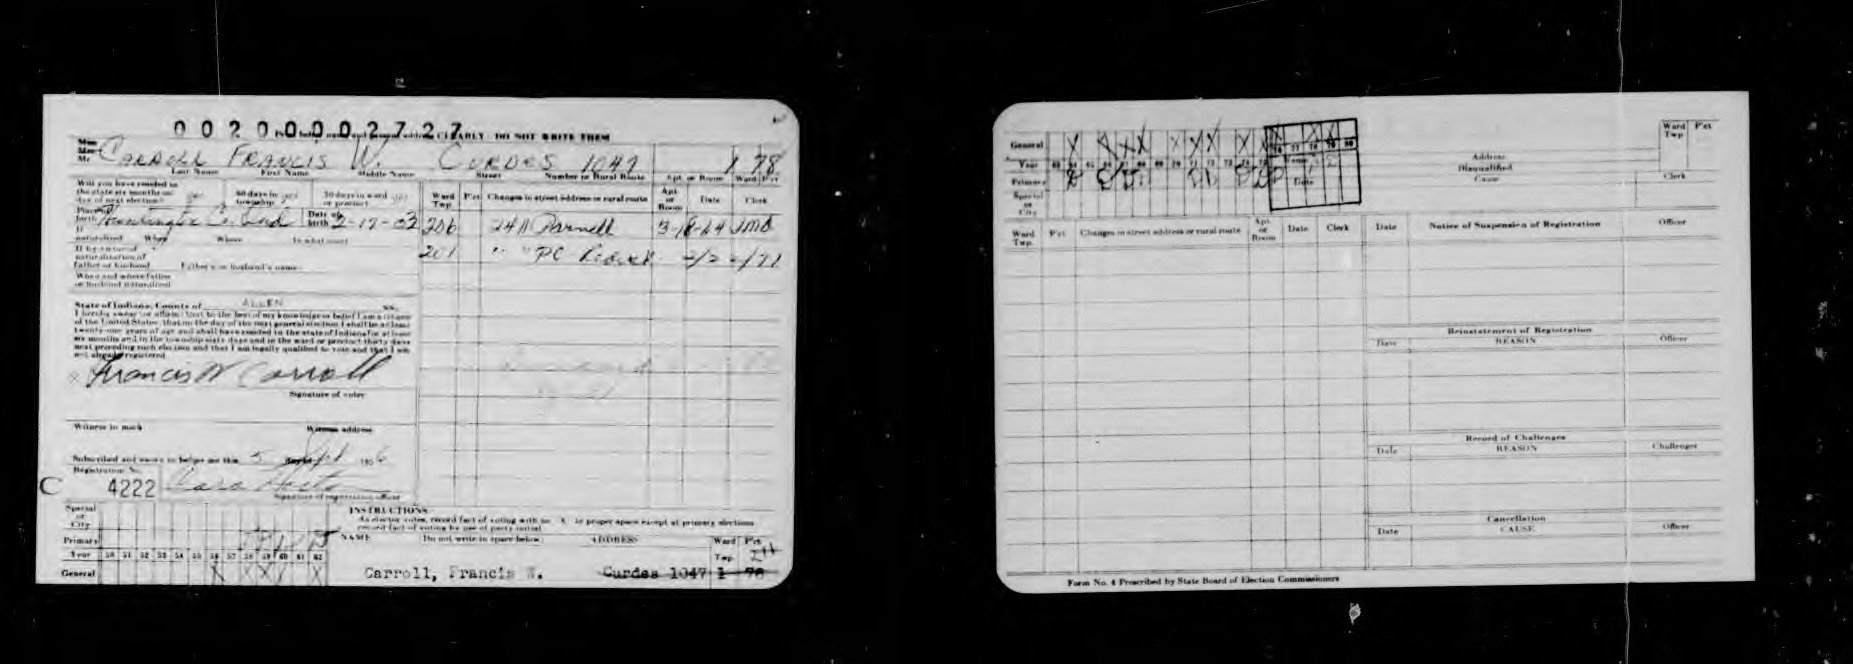 00200002727
CLEARLY DO NOT WRITE THEM
Mr. CARROLL FRANCIS W. CURDES 1047 1 78
Last Name First Name Middle Name Street Number or Rural Route Apt. or Room Ward P'ct
Will you have resided in the state six months on day of next election? yes 60 days in township yes 30 days in ward or precinct yes
Ward Twp. P'ct Changes in street address or rural route Apt. or Room Date Clerk
Place of birth Huntington Co. Ind Date of birth
206 2411 Parnell 3-18-64
201 " " PC
If naturalized When Where In what court
If by virtue of naturalization of father or husband Father's or husband's name
When and where father or husband naturalized
State of Indiana, County of ALLEN ss.
I hereby swear (or affirm) that to the best of my knowledge or belief I am a citizen
of the United States, that on the day of the next general election I shall be at least
twenty-one years of age and shall have resided in the state of Indiana for at least
six months and in the township sixty days and in the ward or precinct thirty days
next preceding such election and that I am legally qualified to vote and that I am
not already registered.
Francis W Carroll
Signature of voter
Witness to mark Witness address
Subscribed and sworn to before me this 5 Sept. 1956
Registration No.
C 4222
Signature of registration officer
INSTRUCTIONS
As elector votes, record fact of voting with an X in proper space except at primary elections
record fact of voting by use of party initial
Special or City
Primary
NAME Do not write in space below: ADDRESS Ward Twp. P'ct
Year 50 51 52 53 54 55 56 57 58 59 60 61 62
General X X X X
Carroll, Francis W. Curdes 1047 1 78
General
Year 63 64 65 66 67 68 69 70 71 72 73 74 75
76 77 78 79 80
Primary
Special or City
Ward Twp P'ct
Address
Disqualified
Cause Clerk
Ward Twp. P'ct Changes in street address or rural route Apt. or Room Date Clerk
Date Notice of Suspension of Registration Officer
Reinstatement of Registration
Date REASON Officer
Record of Challenges
Date REASON Challenger
Cancellation
Date CAUSE Officer
Form No. 4 Prescribed by State Board of Election Commissioners